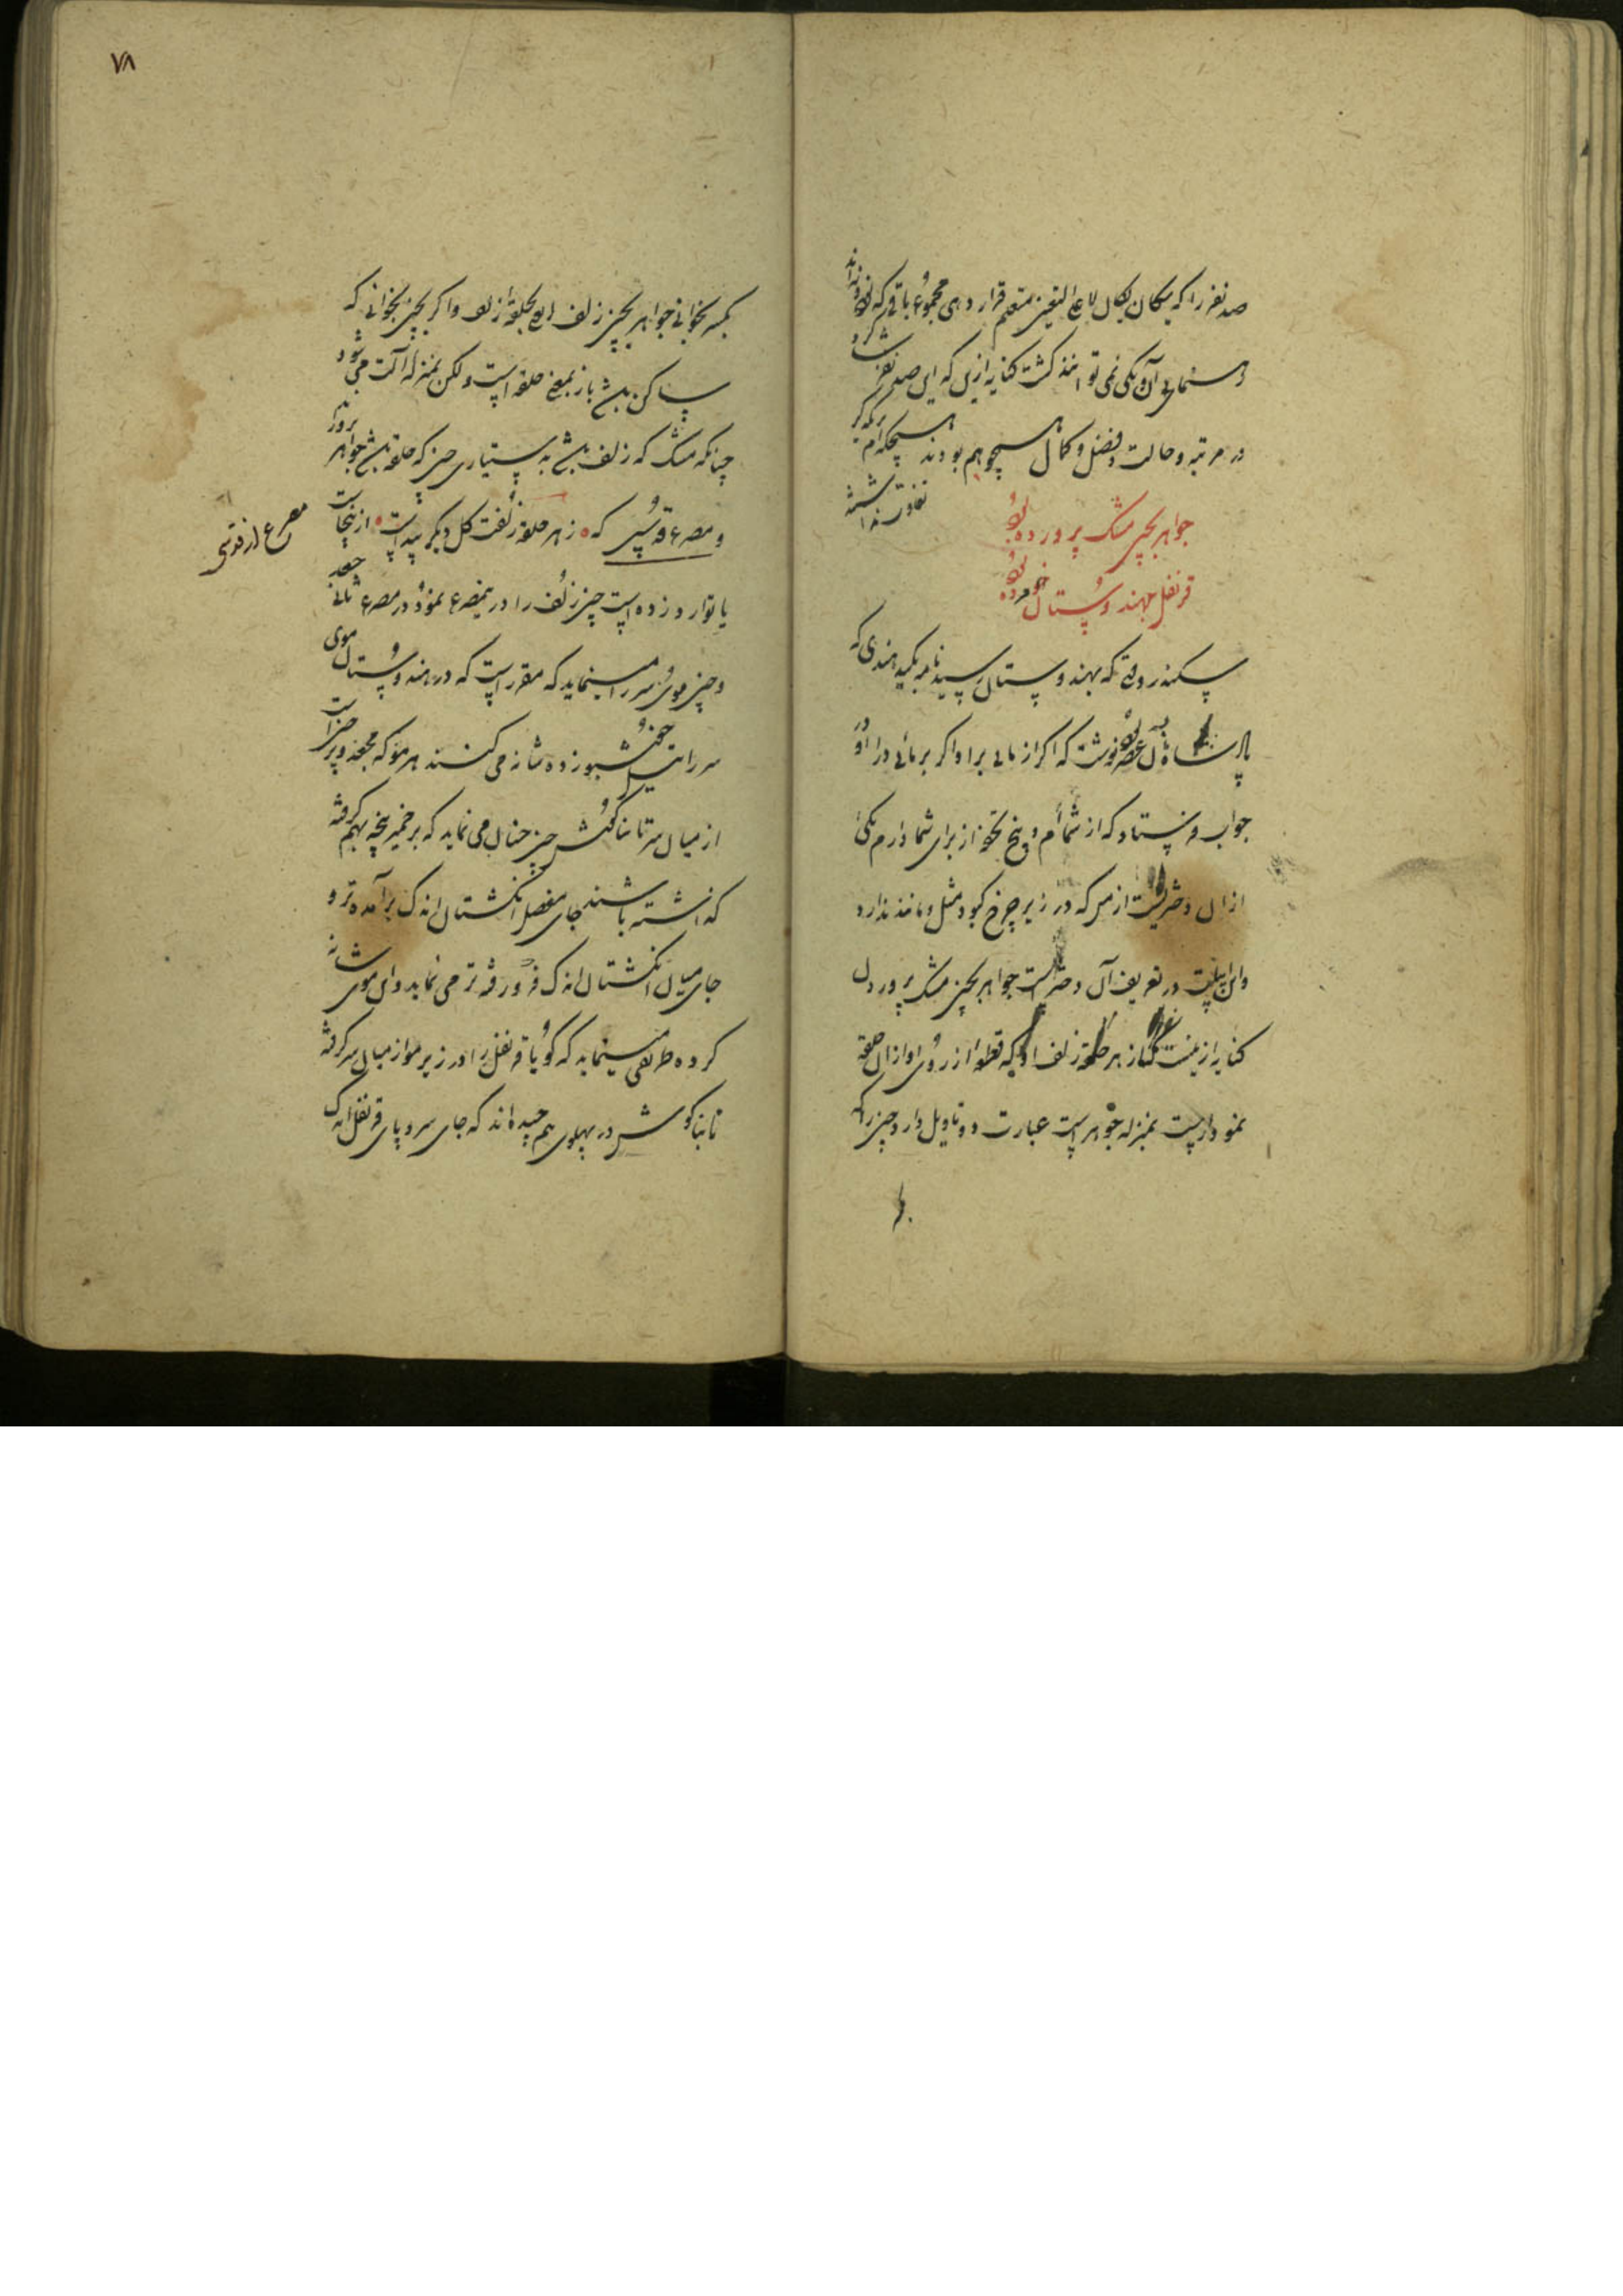 صد نفر را که یکان یکان لا علی التعیین متعلم قرار دهی مجموع باقی که نود و نه‌اند
و سنمائی آن یکی نمی‌تواند گشت کنایه از این که این صد نفر شاگرد
در مرتبه و حالت و فضل و کمال همچو هم بودند هیچکدام
تفاوت نداشتند
جواهر بچین مشک پرورده بود
قرنفل بهندوستان خورده بود
سکندر وقتی که بهندوستان رسید نامه بکید هندی که
پادشاه آن عصر بود نوشت که اگر از مائی برا و اگر بر مائی درا او در
جواب فرستاد که از شماام و پنج تحفه از برای شما دارم یکی
ازان دختریست از من که در زیر چرخ کبود مثل و مانند ندارد
و این بیت در تعریف آن دختر است جواهر بچین مشک پروردن
کنایه از هر حلقه زلف او که قطعه از روی او ازان حلقه
نمودار است بمنزله جوهر است عبارت دو تاویل دارد چین را که
۷۸
بکسر بخوانی جواهر بچین زلف ای بحلقه زلف و اگر بچین بخوانی که
ساکن باشد باز بمعنی حلقه است و لکن بمنزله آلت می‌شود
چنانکه مشک که زلف باشد به دستیاری چین که حلقه باشد جواهر پرورد
و مصرع قدسی که ز هر حلقه زلفت گل دیگر پیداست از اینجاست
مصرع از قدسی
یا توارد زده است چین زلف را در این مصرع نمود و در مصرع ثانی جعد
و چین موی سر را مینماید که مقرر است که در هندوستان موی
سر را خوشبو زده شانه می‌کنند هر مو که مجعد و پر چین است
از میان سر تا بناگوش چین چنان می‌نماید که بر خمیر پنجه بهم گرفته
گذاشته باشند جای مفصل انگشتان اندک برآمده‌تر و
جای میان انگشتان اندک فرورفته‌تر می‌نماید و این موی شانه
کرده طریقی مینماید که گویا قرنفل را در زیر مو از میان سر گرفته
تا بناگوش در پهلوی هم چیده‌اند که جای سر و پای قرنفل اندک